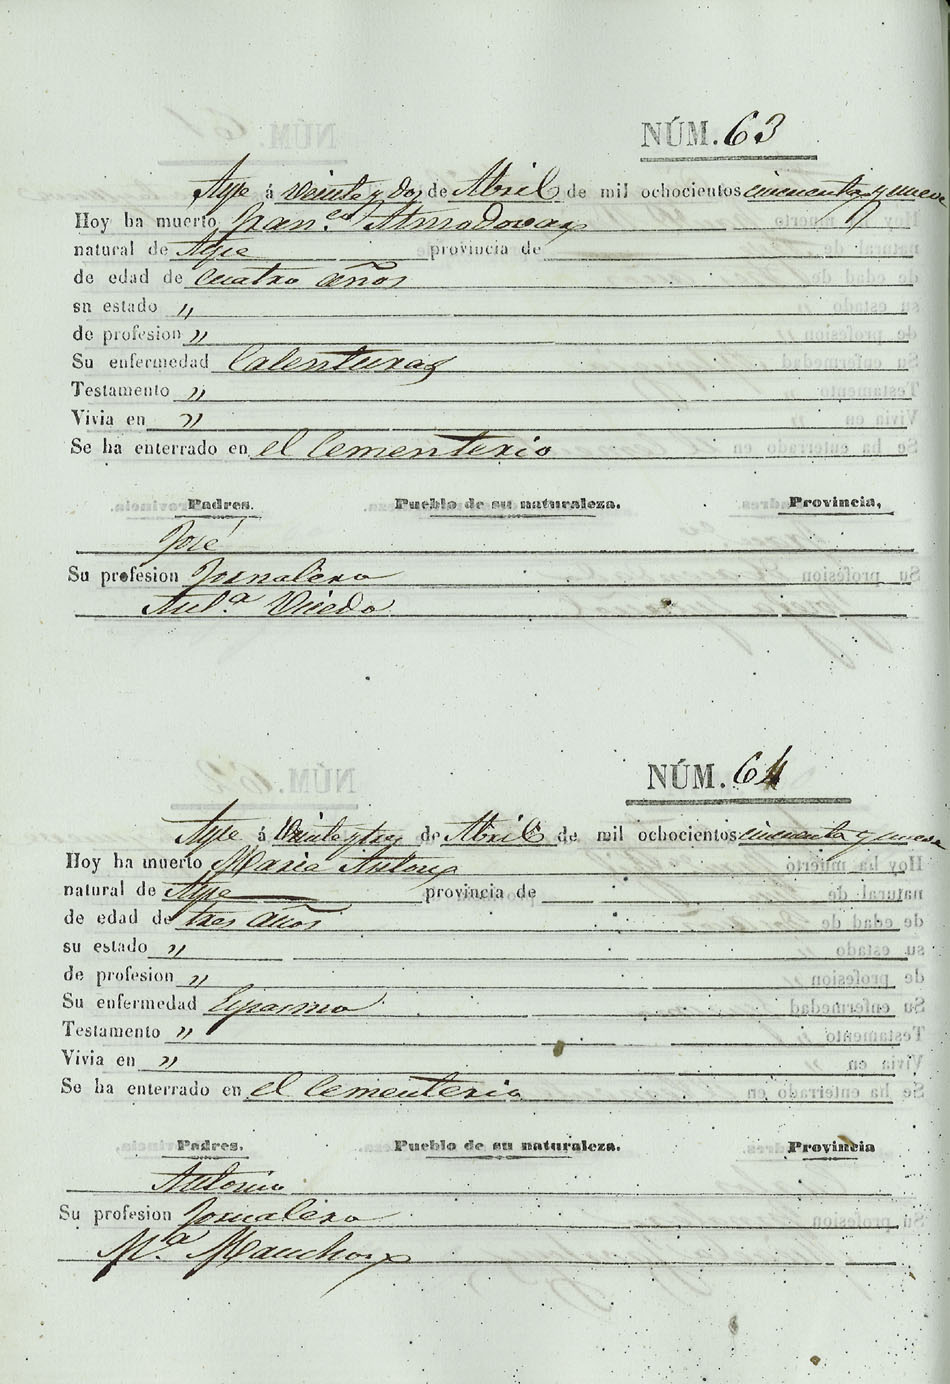 NÚM. 63
Aspe á veinte y dos de Abril de mil ochocientos cincuenta y nueve
Hoy ha muerto Fran.co Almodovar
natural de Aspe provincia de
de edad de cuatro años
sn estado "
de profesion "
Su enfermedad Calenturas
Testamento "
Vivia en "
Se ha enterrado en el Cementerio
Padres. Pueblo de su naturaleza. Provincia,
José
Su profesion Jornalero
Ant.a
NÚM. 64
Aspe á veinte y tres de Abril de mil ochocientos cincuenta y nueve
Hoy ha muerto Maria Anton
natural de Aspe provincia de
de edad de tres años
su estado "
de profesion "
Su enfermedad Espasmo
Testamento "
Vivia en "
Se ha enterrado en el Cementerio
Padres. Pueblo de su naturaleza. Provincia
Antonio
Su profesion Jornalero
M.a Manchon